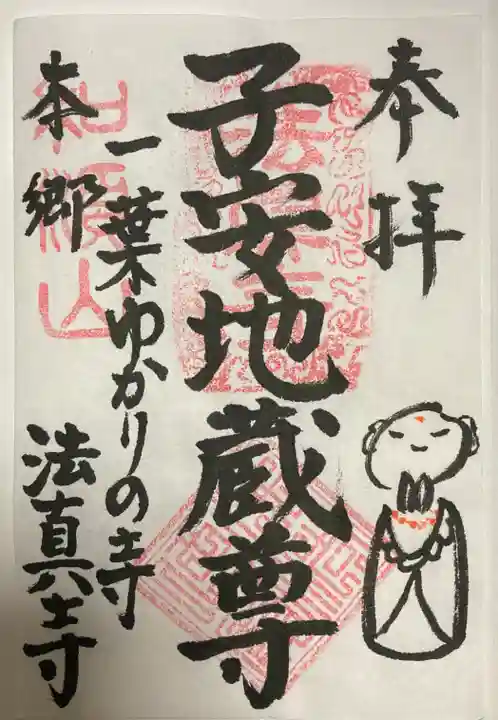 奉拝
子安地蔵尊
一葉ゆかりの寺
本郷 法真寺